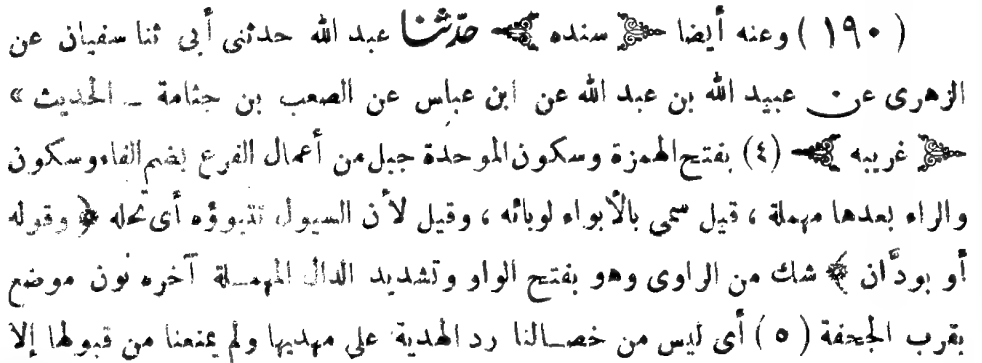 ( ١٩٠ ) وعنه أيضا ﴿ سنده ﴾ حدّثنا عبد الله حدثنى أبى ثنا سفيان عن
الزهرى عن عبيد الله بن عبد الله عن ابن عباس عن الصعب بن جثامة ـ الحديث »
﴿ غريبه ﴾ (٤) بفتح الهمزة وسكون الموحدة جبل من أعمال الفرع بضم الفاء وسكون
والراء بعدها مهملة ، قيل سمى بالأبواء لوبائه ، وقيل لأن السيول تتبوؤه أى تحله ﴿ وقوله
أو بودَّان ﴾ شك من الراوى وهو بفتح الواو وتشديد الدال المهملة آخره نون موضع
بقرب الجحفة ( ٥ ) أى ليس من خصالنا رد الهدية على مهديها ولم يمنعنا من قبولها إلا